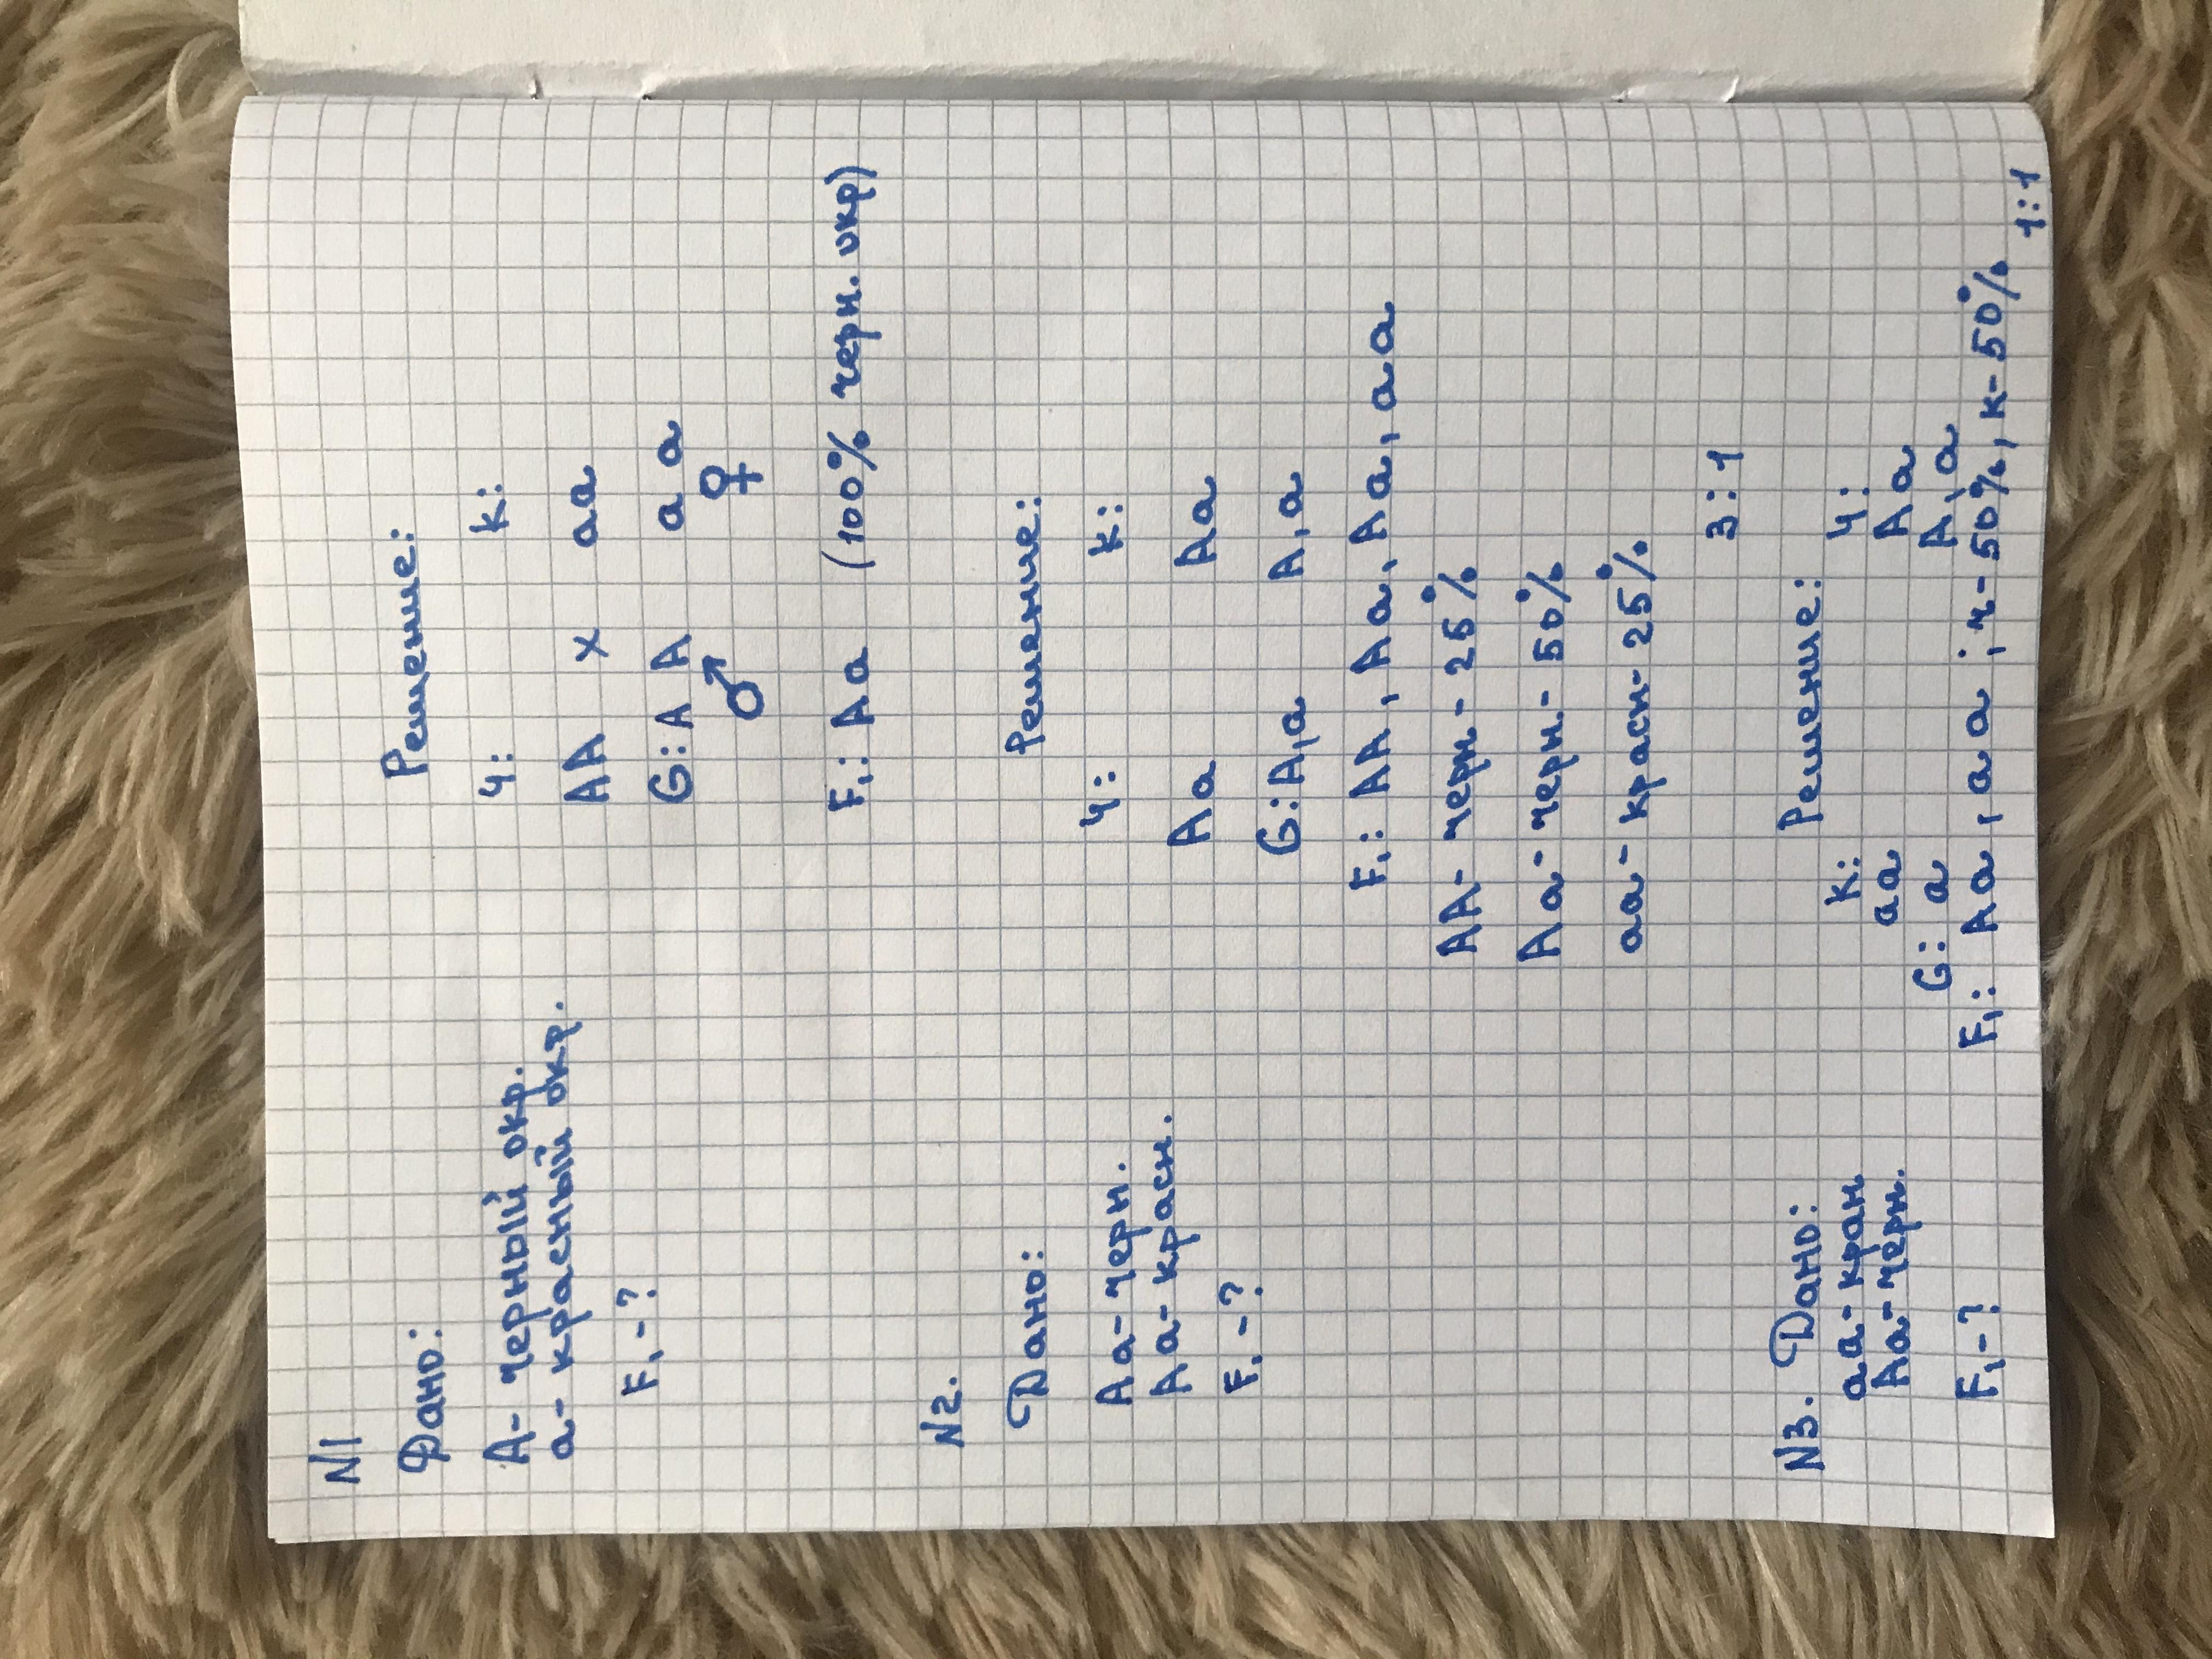 N1
Дано:
Решение:
А- черный окр.
а- красный окр.
F₁-?
ч: к:
АА х аа
G: А А а а
♂ ♀
F₁: Аа (100% черн. окр)
N2.
Дано:
Решение:
Аа-черн.
Аа-красн.
F₁-?
ч: к:
Аа Аа
G: А,а А,а
F₁: АА, Аа, Аа, аа
АА- черн- 25%
Аа- черн- 50%
аа- красн- 25%
3:1
N3. Дано:
Решение:
аа-кран
Аа-черн.
F₁-?
к: ч:
аа Аа
G: а А,а
F₁: Аа, аа; ч-50%, к-50% 1:1